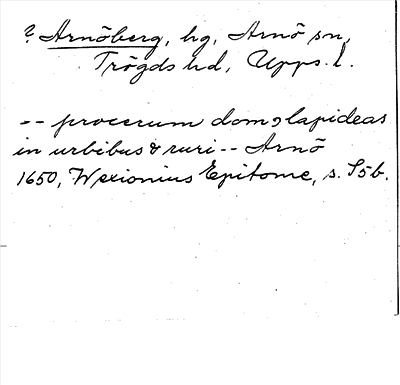 ? Arnöberg, hg, Arnö sn,
Trögds hd, Upps. l.
-- procerum domꝰ lapideas
in urbibus & ruri -- Arnö
1650, Wexionius Epitome, s. S5b.